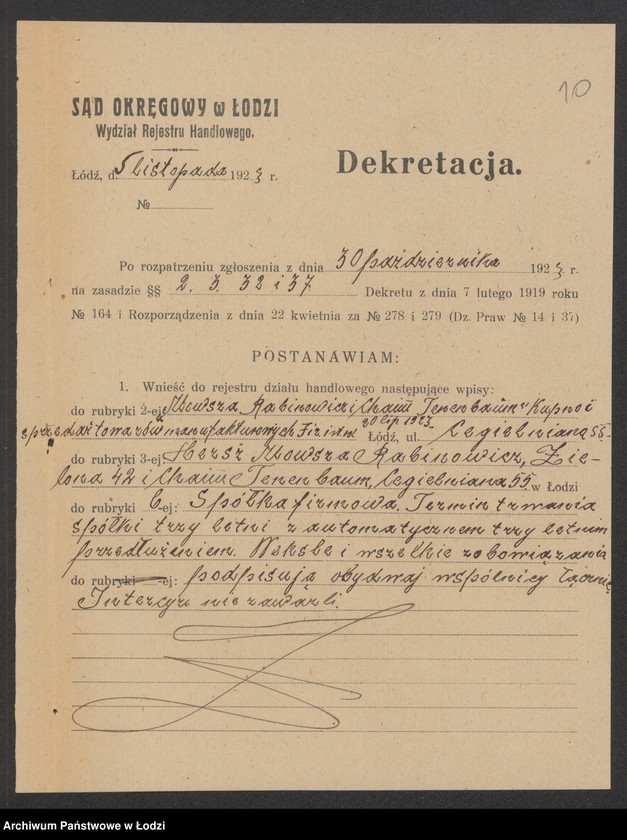 10
SĄD OKRĘGOWY w ŁODZI
Wydział Rejestru Handlowego.
Dekretacja.
Łódź, d. 5 listopada 1923 r.
№
Po rozpatrzeniu zgłoszenia z dnia 30 października 1923 r.
na zasadzie §§ 2. 3. 32 i 37. Dekretu z dnia 7 lutego 1919 roku
№ 164 i Rozporządzenia z dnia 22 kwietnia za № 278 i 279 (Dz. Praw № 14 i 37)
POSTANAWIAM:
1. Wnieść do rejestru działu handlowego następujące wpisy:
do rubryki 2-ej: „Mowsza Rabinowicz i Chaim Tenenbaum" Kupno i
sprzedaż towarów manufakturowych 20 lip 1923. Łódź, ul. Cegielniana 55.
do rubryki 3-ej: Hersz Mowsza Rabinowicz, Zie-
lona 42 i Chaim Tenenbaum, Cegielniana 55. w Łodzi
do rubryki 6-ej: Spółka firmowa. Termin trwania
spółki trzy letni z automatycznem trzy letnim
przedłużeniem. Weksle i wszelkie zobowiązania
do rubryki -ej: podpisują obydwaj wspólnicy łącznie
Intercyz nie zawarli.
Archiwum Państwowe w Łodzi